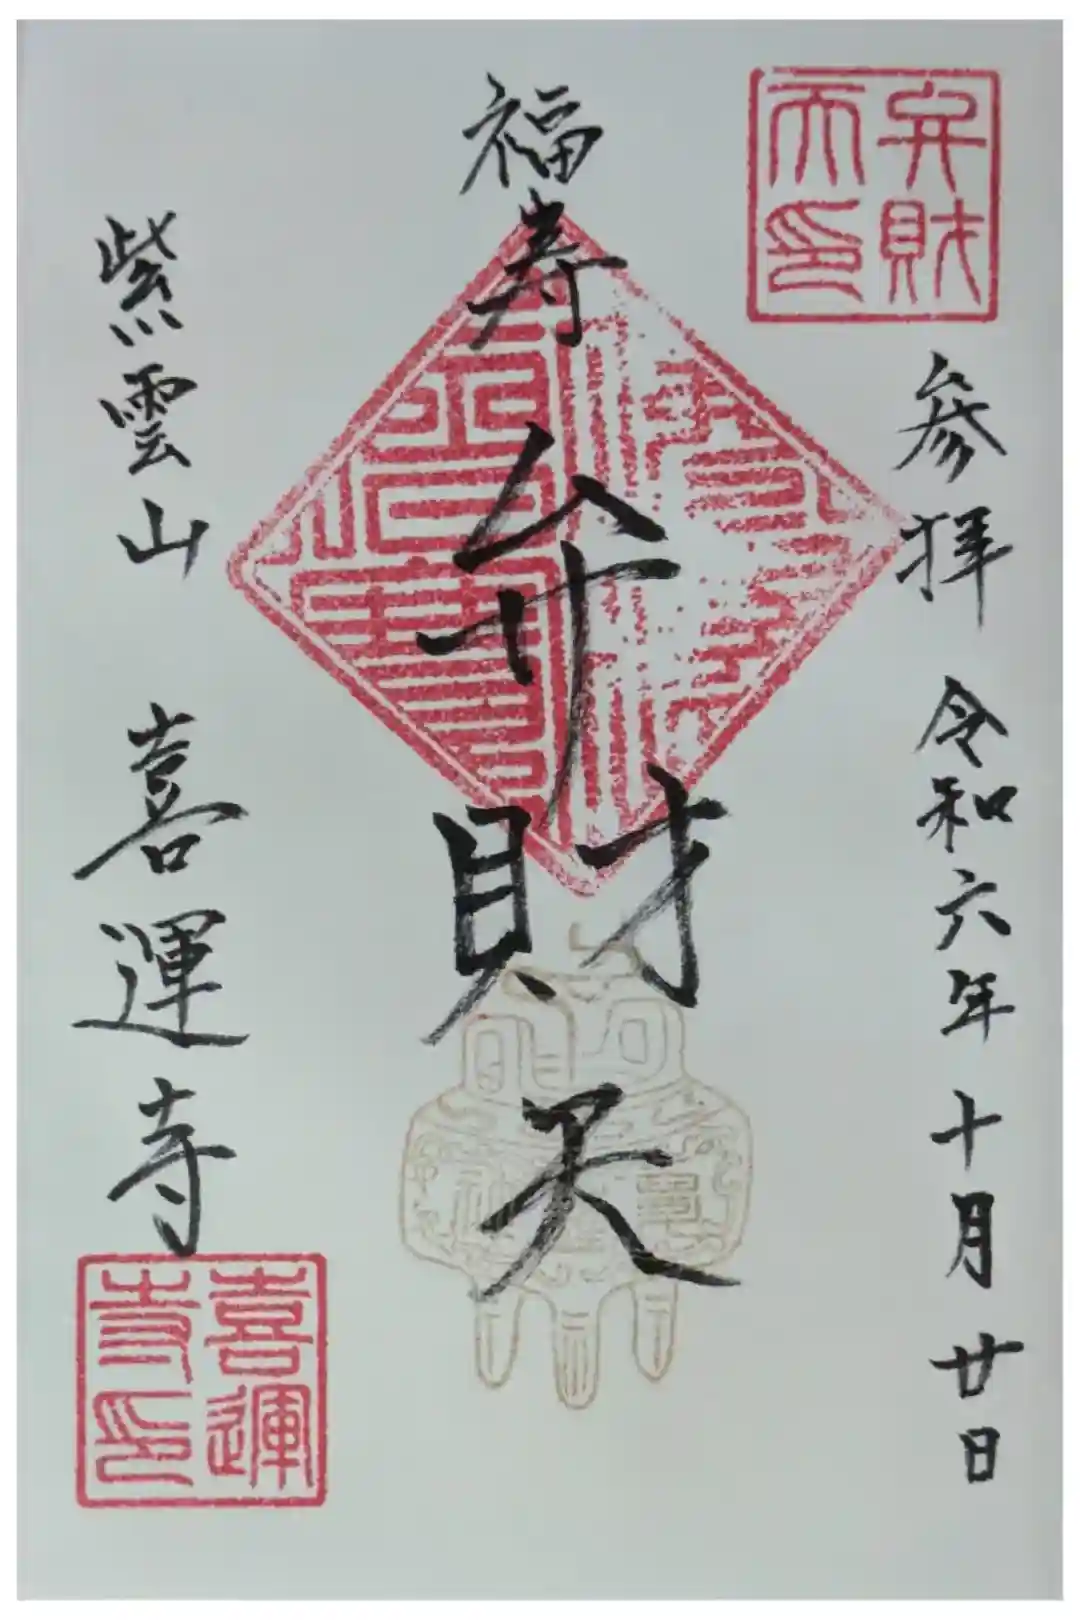 弁財
天印
参拝 令和六年 十月 廿日
福寿 弁財天
紫雲山 喜運寺
喜運
寺印